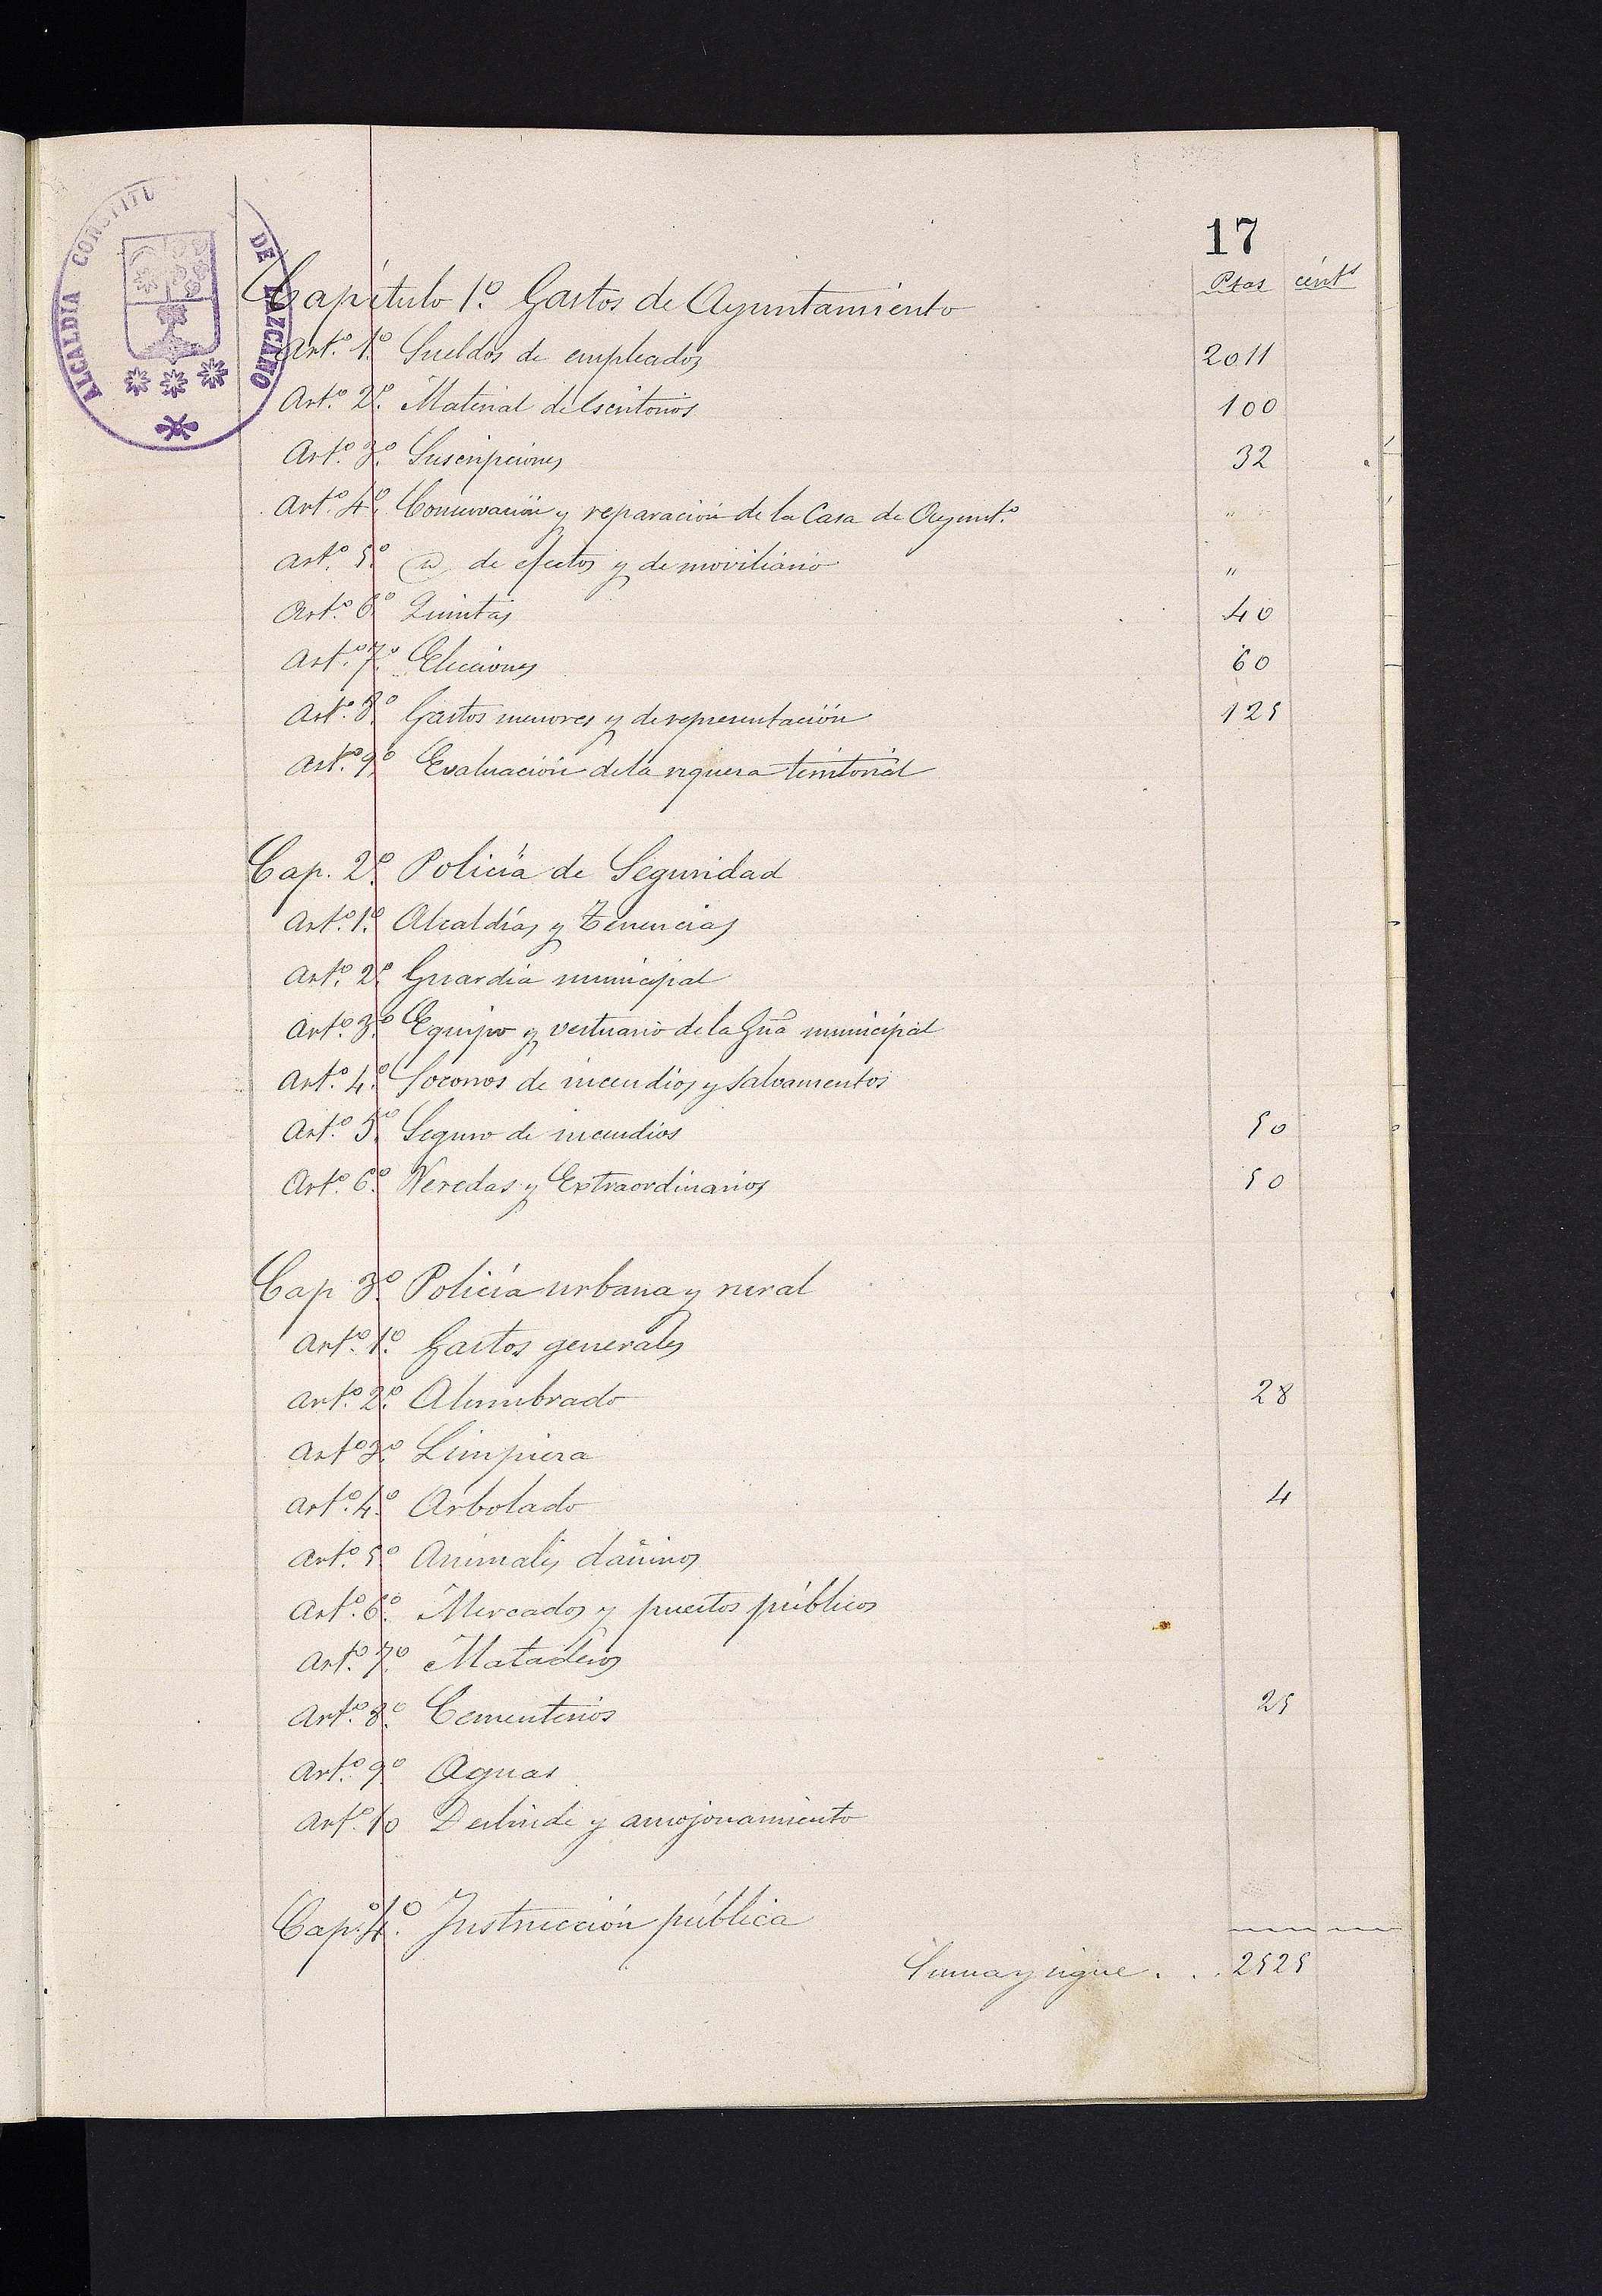 17
ALCALDIA CONSTITU DE LAZCANO
Ptas cénts
Capítulo 1.º Gastos de Ayuntamiento
Art.º 1.º Sueldos de empleados 2011
Art.º 2.º Material de Escritorios 100
Art.º 3.º Suscripciones 32
Art.º 4.º Conservación y reparación de la Casa de Ayunt.º "
Art.º 5.º de efectos y de moviliario "
Art.º 6.º Quintas 40
Art.º 7.º Elecciones 60
Art.º 8.º Gastos menores y de representación 125
Art.º 9.º Evaluación de la riqueza territorial
Cap. 2.º Policía de Seguridad
Art.º 1.º Alcaldías y Tenencias
Art.º 2.º Guardia municipal
Art.º 3.º Equipo y vestuario de la Gũa municipal
Art.º 4.º Socorros de incendios y salvamentos
Art.º 5.º Seguro de incendios 50
Art.º 6.º Veredas y Extraordinarios 50
Cap 3.º Policía urbana y rural
Art.º 1.º Gastos generales
Art.º 2.º Alumbrado 28
Art.º 3.º Limpieza
Art.º 4.º Arbolado 4
Art.º 5.º Animales dañinos
Art.º 6.º Mercados y puestos públicos
Art.º 7.º Mataderos
Art.º 8.º Cementerios 25
Art.º 9.º Aguas
Art.º 10 Deslinde y amojonamiento
Cap.º 4.º Instrucción pública
Suma y sigue . . . 2525